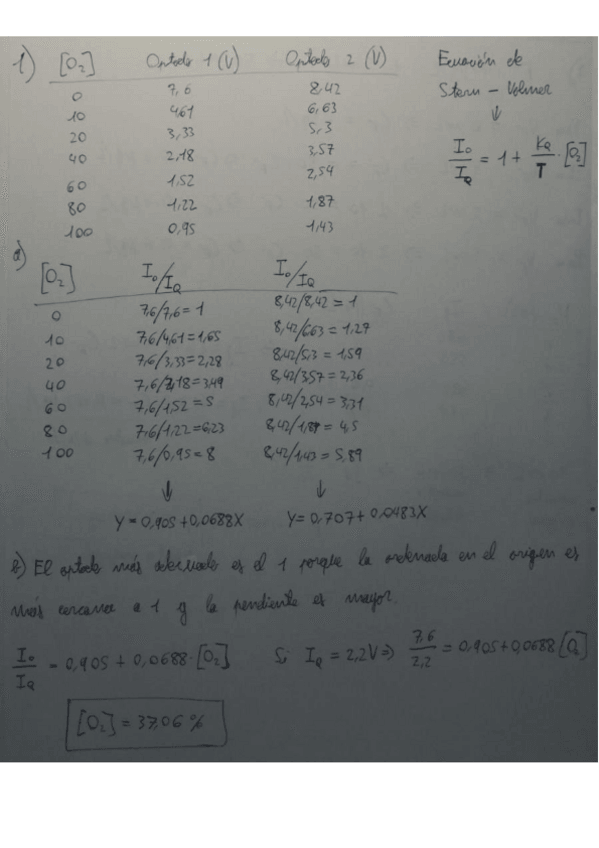 1) [O₂] Optodo 1 (V) Optodo 2 (V) Ecuación de
Stern - Volmer
↓
I₀/I_Q = 1 + K_Q/T · [O₂]
0 7,6 8,42
10 4,61 6,63
20 3,33 5,3
40 2,18 3,57
60 1,52 2,54
80 1,22 1,87
100 0,95 1,43
a) [O₂] I₀/I_Q I₀/I_Q
0 7,6/7,6 = 1 8,42/8,42 = 1
10 7,6/4,61 = 1,65 8,42/6,63 = 1,27
20 7,6/3,33 = 2,28 8,42/5,3 = 1,59
40 7,6/2,18 = 3,49 8,42/3,57 = 2,36
60 7,6/1,52 = 5 8,42/2,54 = 3,31
80 7,6/1,22 = 6,23 8,42/1,87 = 4,5
100 7,6/0,95 = 8 8,42/1,43 = 5,89
↓ ↓
Y = 0,905 + 0,0688X Y = 0,707 + 0,0483X
b) El optodo más adecuado es el 1 porque la ordenada en el origen es
más cercana a 1 y la pendiente es mayor.
I₀/I_Q = 0,905 + 0,0688 · [O₂] Si I_Q = 2,2V ⇒ 7,6/2,2 = 0,905 + 0,0688 [O₂]
[O₂] = 37,06 %